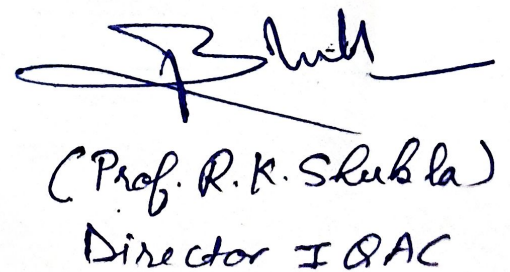 (Prof. R.K. Shukla)
Director IQAC